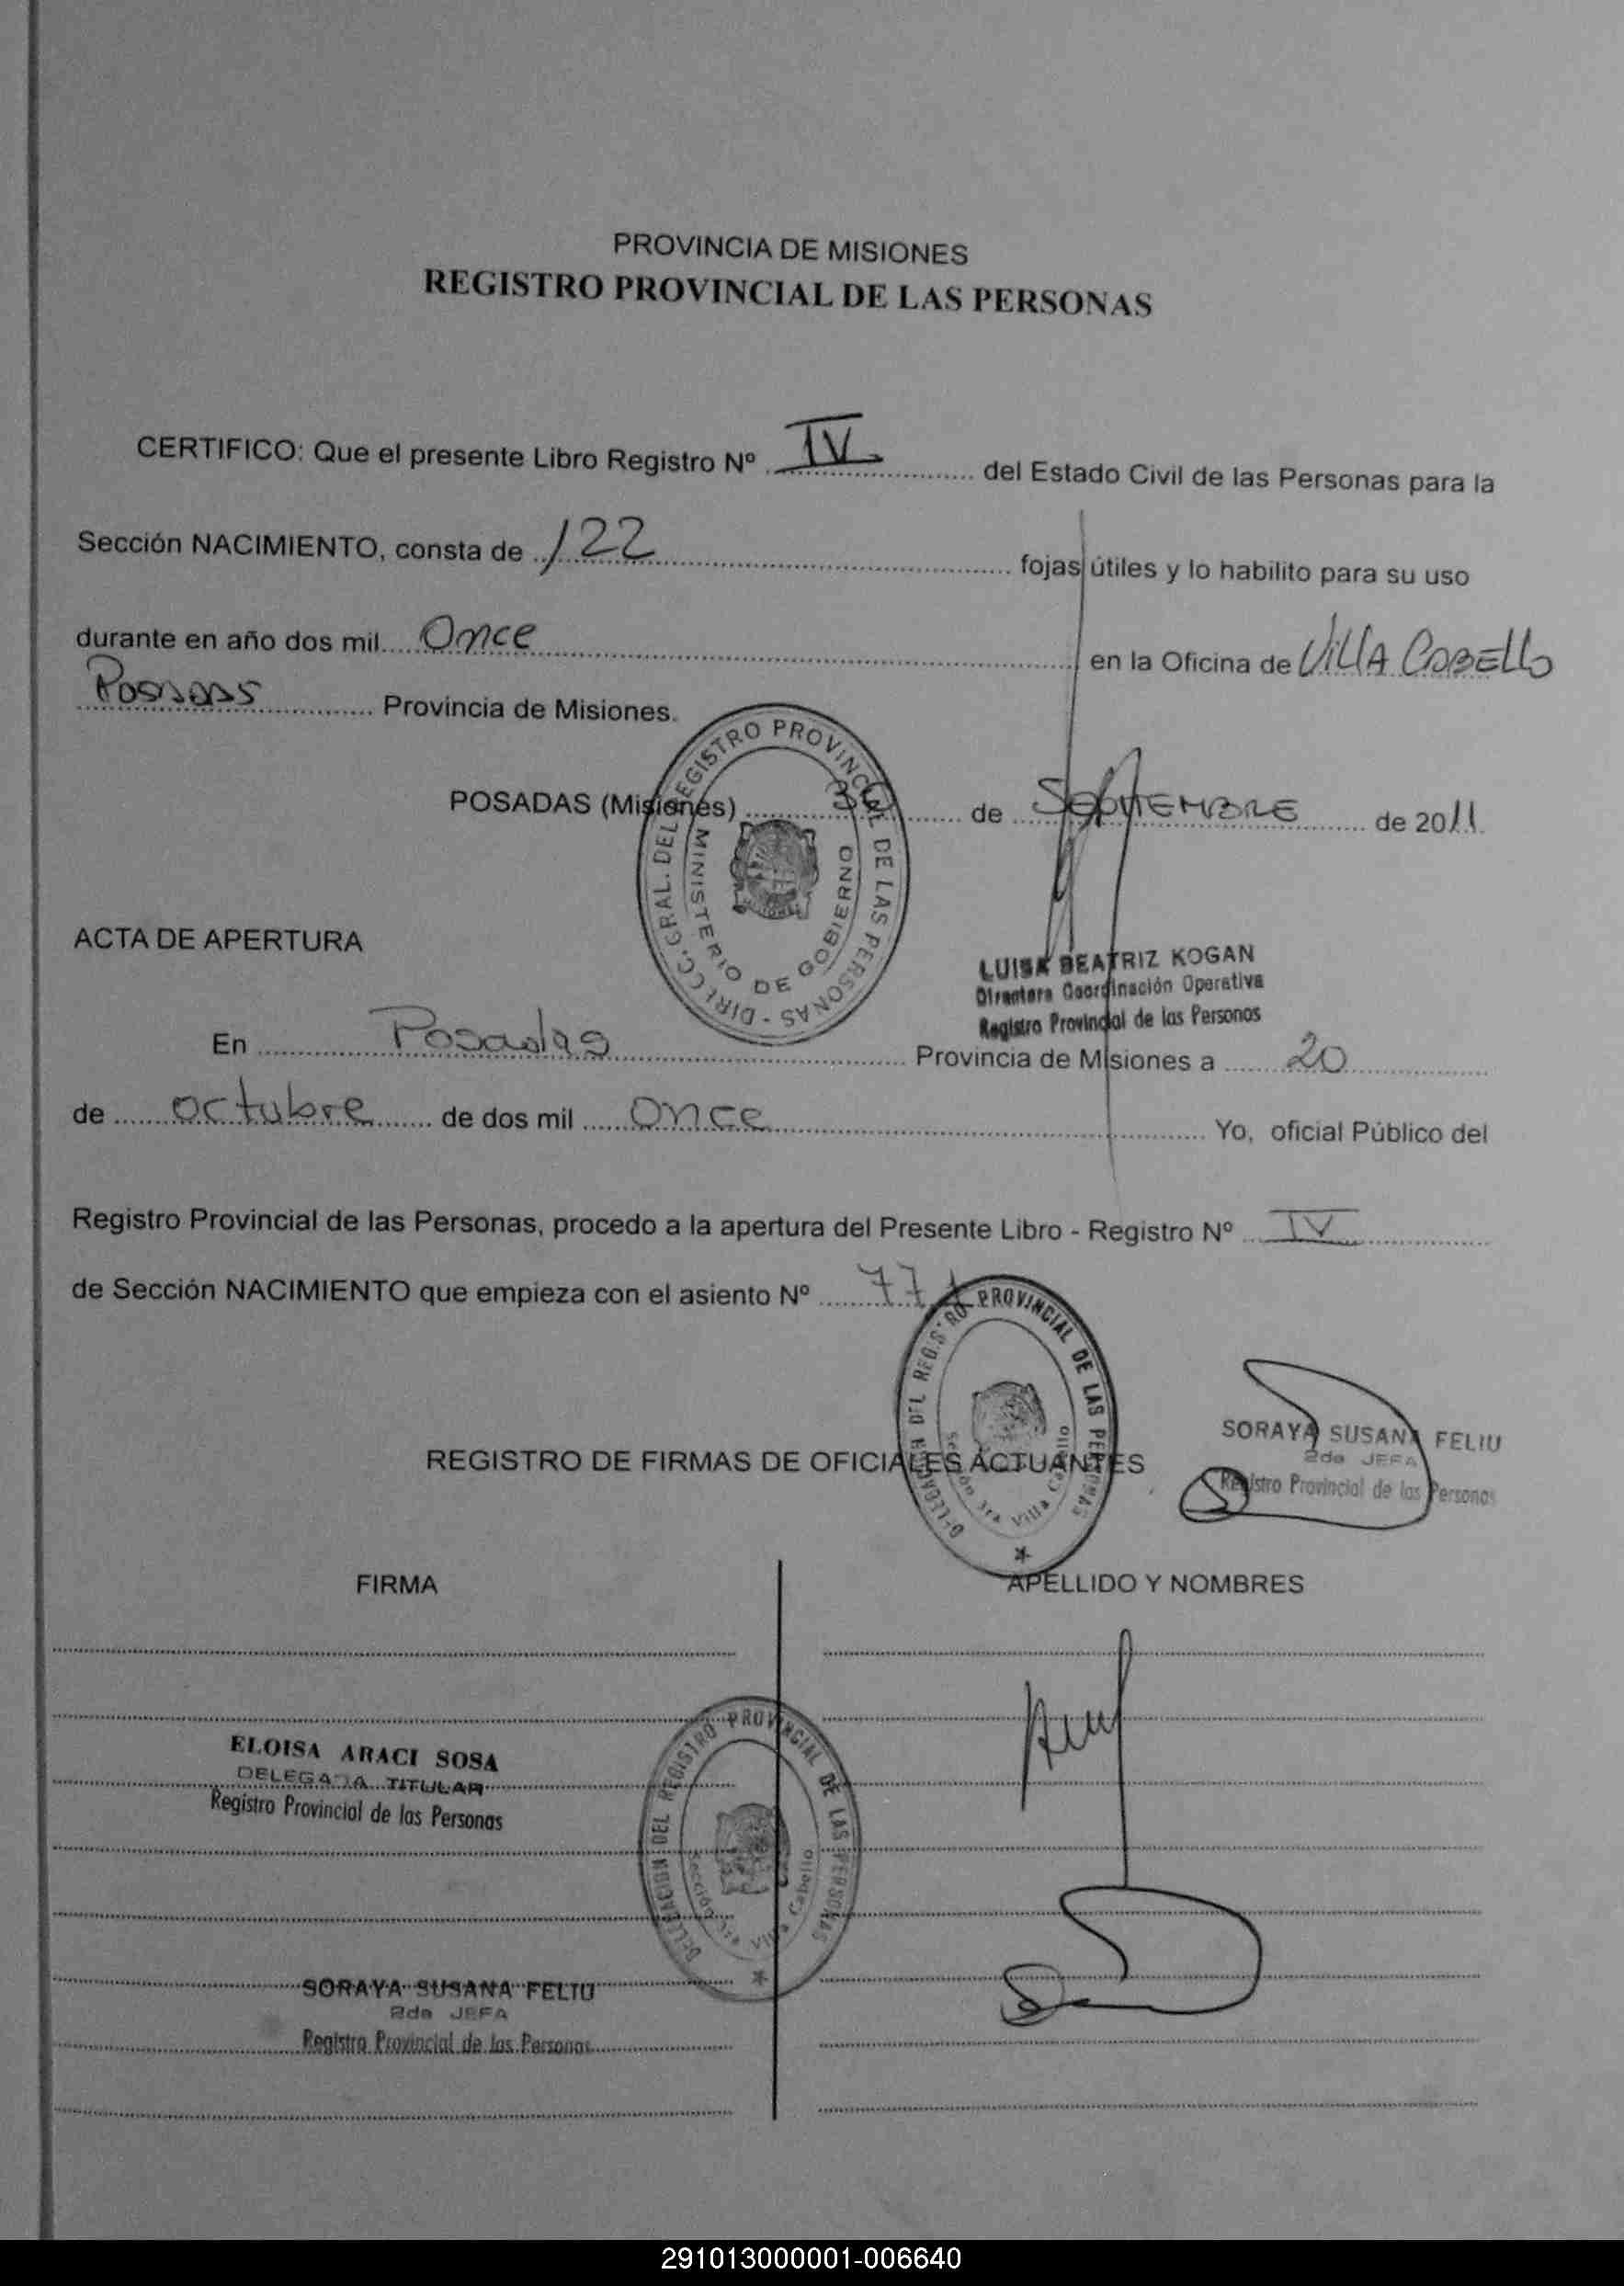 PROVINCIA DE MISIONES
REGISTRO PROVINCIAL DE LAS PERSONAS
CERTIFICO: Que el presente Libro Registro Nº IV del Estado Civil de las Personas para la
Sección NACIMIENTO, consta de 122 fojas útiles y lo habilito para su uso
durante en año dos mil Once en la Oficina de Villa Cabello
Posadas Provincia de Misiones.
POSADAS (Misiones) 30 de Septiembre de 2011
DIRECC. GRAL. DEL REGISTRO PROVINCIAL DE LAS PERSONAS -
MINISTERIO DE GOBIERNO
LUISA BEATRIZ KOGAN
Directora Coordinación Operativa
Registro Provincial de las Personas
ACTA DE APERTURA
En Posadas Provincia de Misiones a 20
de octubre de dos mil once Yo, oficial Público del
Registro Provincial de las Personas, procedo a la apertura del Presente Libro - Registro Nº IV
de Sección NACIMIENTO que empieza con el asiento Nº
DEL REGISTRO PROVINCIAL DE LAS PERSONAS
Sección Villa Cabello
SORAYA SUSANA FELIU
2da JEFA
Registro Provincial de las Personas
REGISTRO DE FIRMAS DE OFICIALES ACTUANTES
FIRMA APELLIDO Y NOMBRES
ELOISA ARACI SOSA
DELEGADA TITULAR
Registro Provincial de las Personas
DELEGACION DEL REGISTRO PROVINCIAL DE LAS PERSONAS
Sección Villa Cabello
SORAYA SUSANA FELIU
2da JEFA
Registro Provincial de las Personas
291013000001-006640